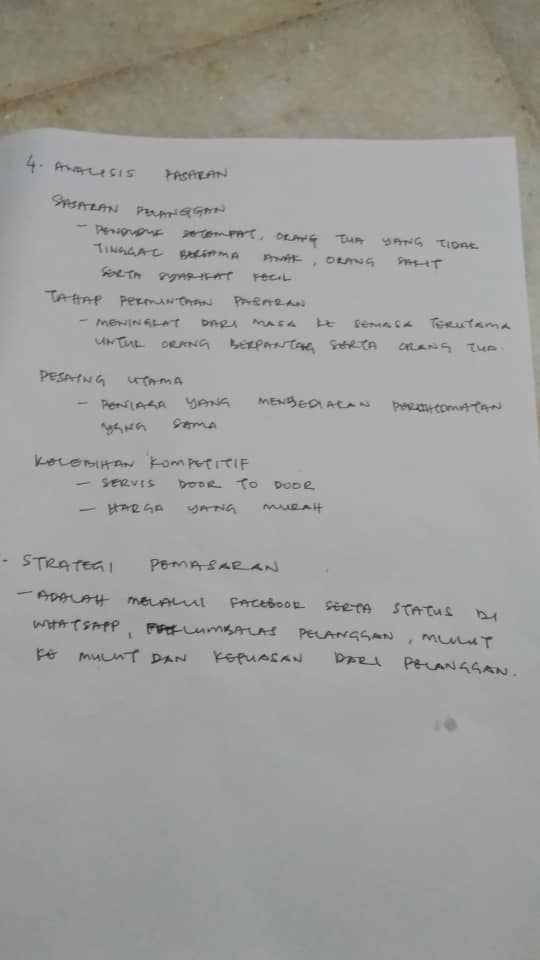 4. ANALISIS PASARAN
SASARAN PELANGGAN
- PENDUDUK SETEMPAT, ORANG TUA YANG TIDAK
TINGGAL BERSAMA ANAK, ORANG SAKIT
SERTA SYARIKAT KECIL
TAHAP PERMINTAAN PASARAN
- MENINGKAT DARI MASA KE SEMASA TERUTAMA
UNTUK ORANG BERPANTANG SERTA ORANG TUA.
PESAING UTAMA
- PENIAGA YANG MENYEDIAKAN PERKHIDMATAN
YANG SAMA
KELEBIHAN KOMPETITIF
- SERVIS DOOR TO DOOR
- HARGA YANG MURAH
- STRATEGI PEMASARAN
- ADALAH MELALUI FACEBOOK SERTA STATUS DI
WHATSAPP, PELANGGAN, MULUT
KE MULUT DAN KEPUASAN DARI PELANGGAN.